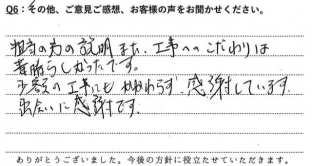 Q6：その他、ご意見ご感想、お客様の声をお聞かせください。
担当の方の説明また、工事へのこだわりは
素晴らしかったです。
少額の工事にもかかわらず、感謝しています。
出会いに感謝です。
ありがとうございました。今後の方針に役立たせていただきます。